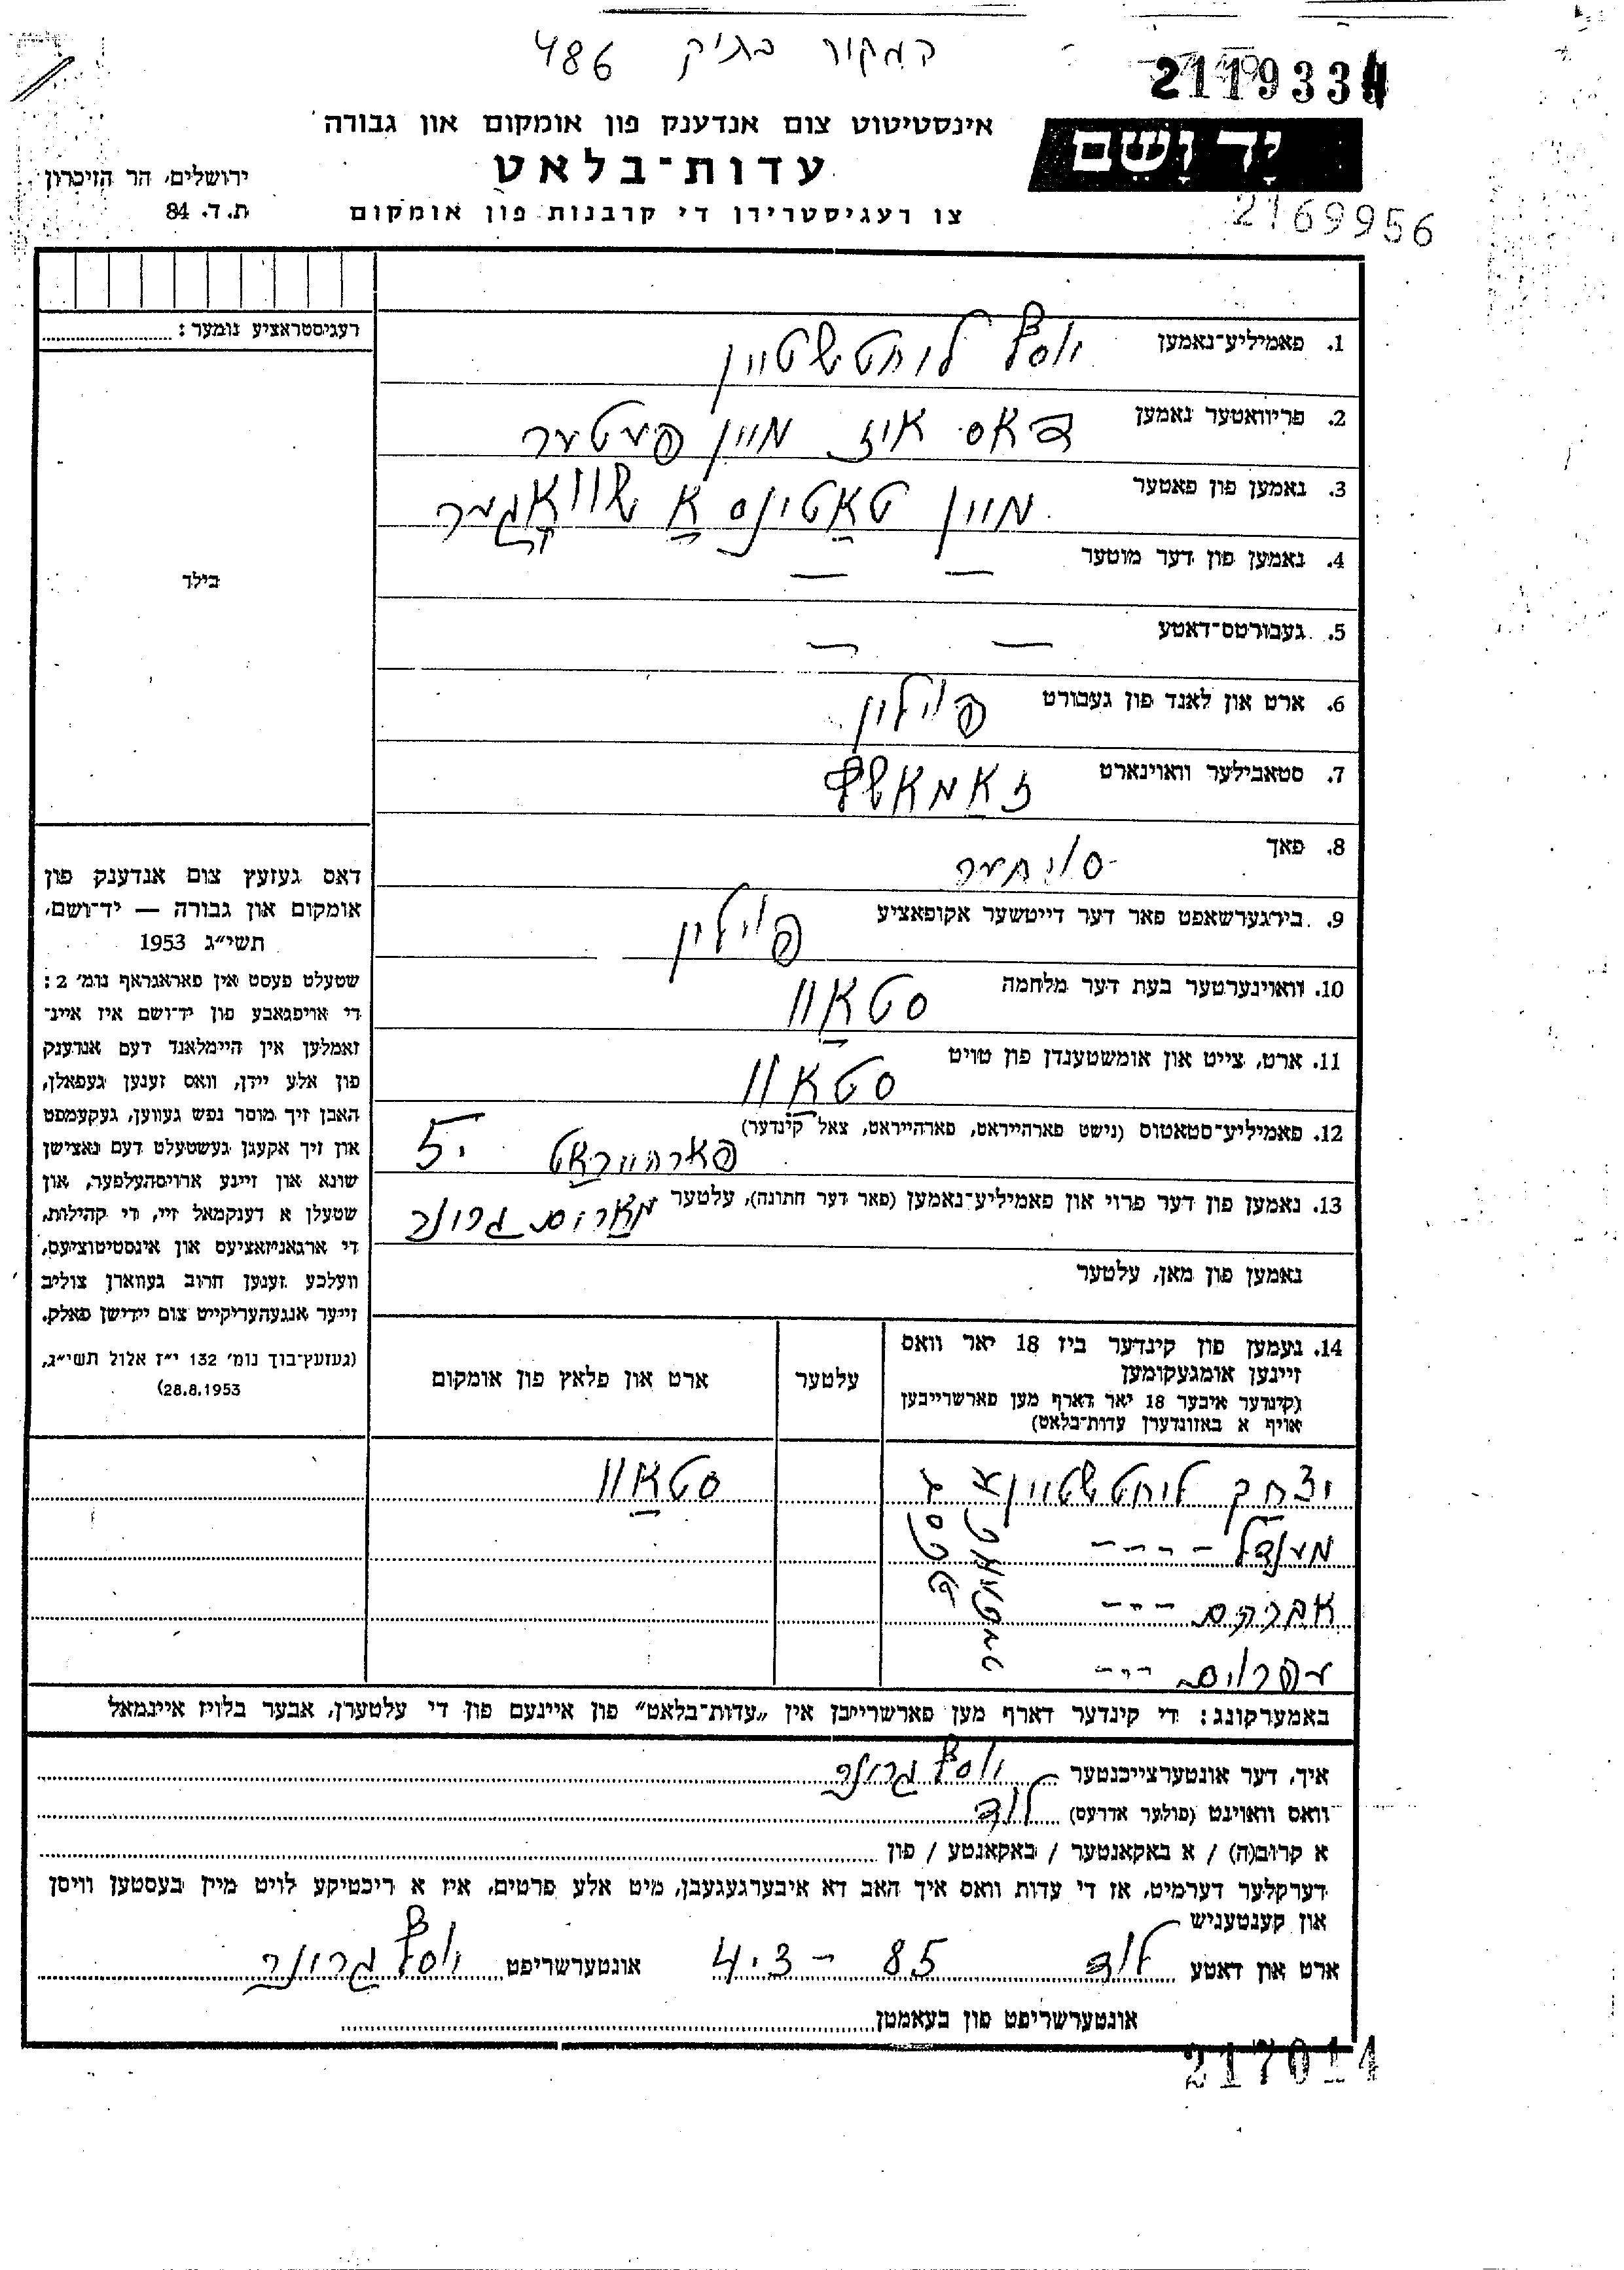 המקור בתיק 486
2119334
אינסטיטוט צום אנדענק פון אומקום און גבורה
יָד וָשֵׁם
עדות־בלאט
ירושלים, הר הזיכרון
ת.ד. 84
צו רעגיסטרירן די קרבנות פון אומקום
2169956
רעגיסטראציע נומער:
1. פאמיליע־נאמען יוסף ליחטשטיין
2. פריוואטער נאמען דאס איז מיין פעטער
3. נאמען פון פאטער מיין טאַטינס אַ שוואָגער
4. נאמען פון דער מוטער — —
5. געבורטס־דאטע — —
6. ארט און לאנד פון געבורט פוילין
7. סטאבילער וואוינארט זאַמאשץ
8. פאך סוחער
9. בירגערשאפט פאר דער דייטשער אקופאציע פוילין
10. וואוינערטער בעת דער מלחמה סטאַוו
11. ארט, צייט און אומשטענדן פון טויט סטאַוו
12. פאמיליע־סטאטוס (נישט פארהייראט, פארהייראט, צאל קינדער)
פארהייראַט 5.
13. נאמען פון דער פרוי און פאמיליע־נאמען (פאר דער חתונה), עלטער גרינער
נאמען פון מאן, עלטער
בילד
דאס געזעץ צום אנדענק פון
אומקום און גבורה — יד־ושם,
תשי״ג 1953
שטעלט פעסט אין פאראגראף נומ׳ 2:
די אויפגאבע פון יד־ושם איז איינ־
זאמלען אין היימלאנד דעם אנדענק
פון אלע יידן, וואס זענען געפאלן,
האבן זיך מוסר נפש געווען, געקעמפט
און זיך אקעגן געשטעלט דעם נאצישן
שונא און זיינע ארויסהעלפער, און
שטעלן א דענקמאל זיי, די קהילות,
די ארגאניזאציעס און אינסטיטוציעס,
וועלכע זענען חרוב געווארן צוליב
זייער אנגעהעריקייט צום יידישן פאלק.
(געזעץ־בוך נומ׳ 132 י״ז אלול תשי״ג,
28.8.1953)
14. נעמען פון קינדער ביז 18 יאר וואס
זיינען אומגעקומען
(קינדער איבער 18 יאר דארף מען פארשרייבען
אויף א באזונדערן עדות־בלאט)
עלטער
ארט און פלאץ פון אומקום
יצחק ליחטשטיין סטאַוו
מענדל - - - -
אברהם - - -
אפרוים - - -
באמערקונג: די קינדער דארף מען פארשרייבן אין „עדות־בלאט” פון איינעם פון די עלטערן, אבער בלויז איינמאל
איך, דער אונטערצייכנטער יוסף גרינער
וואס וואוינט (פולער אדרעס) לוד
א קרוב(ה) / א באקאנטער / באקאנטע / פון
דערקלער דערמיט, אז די עדות וואס איך האב דא איבערגעגעבן, מיט אלע פרטים, איז א ריכטיקע לויט מיין בעסטען וויסן
און קענטעניש
ארט און דאטע לוד 4.3 - 85 אונטערשריפט יוסף גרינער
אונטערשריפט פון בעאמטן
217014